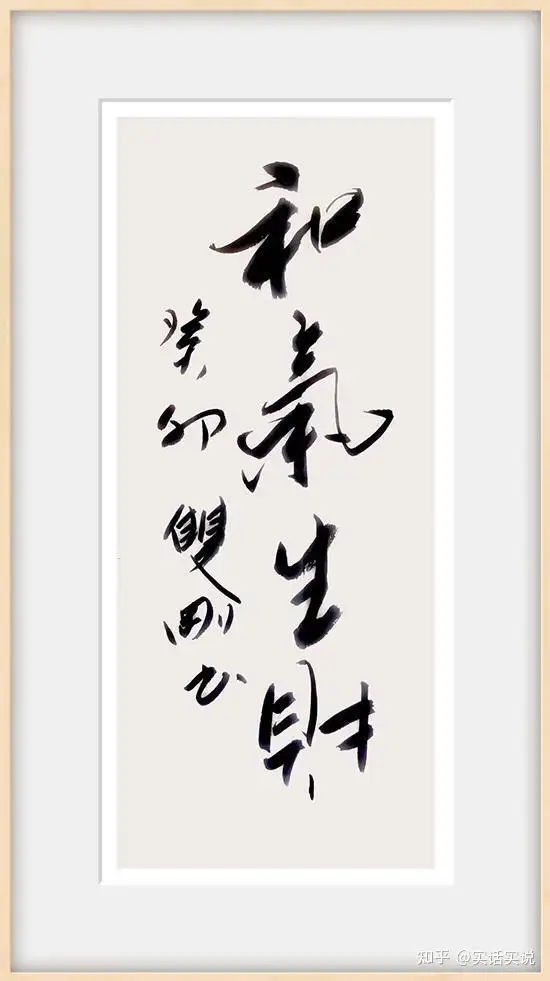 和氣生財
癸卯雙剛书
知乎 @实话实说